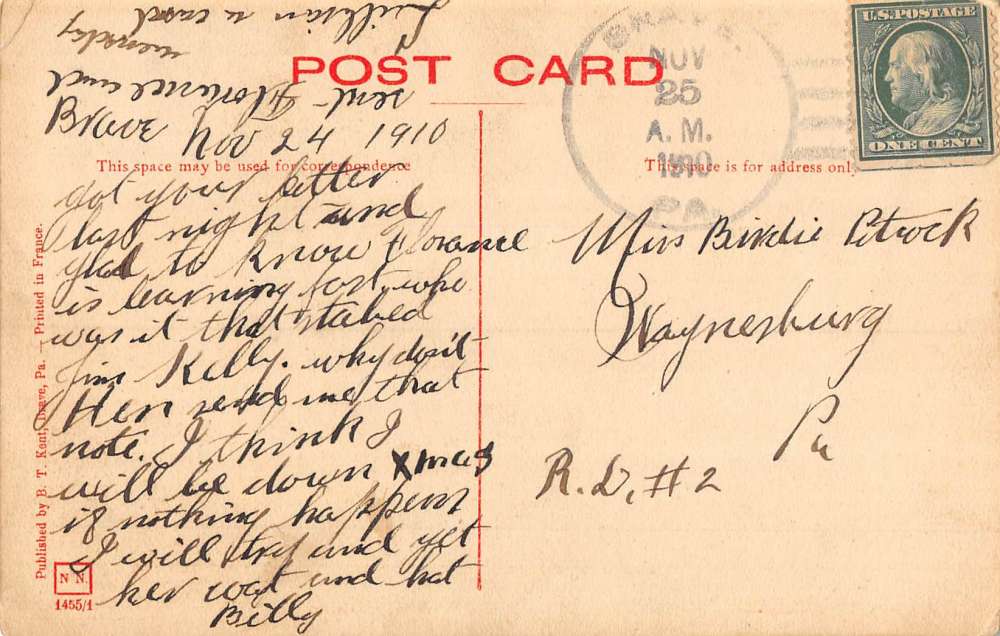 U.S. POSTAGE
ONE CENT
BRAVE,
NOV
25
A.M.
1910
PA.
POST CARD
This space may be used for correspondence
This space is for address only
sent Florence and
Lillian a card
Brave Nov 24 1910
got your letter
last night and
glad to know Florance
is learning fast. who
was it that stabed
Jim Kelly. why don't
Hen send me that
note. I think I
will be down Xmas
if nothing happens
I will try and get
her coat and hat
Billy
Miss Birdie Petrock
Waynesburg
Pa
R.D. #2
Published by B. T. Kent, Brave, Pa. — Printed in France.
N N.
1455/1